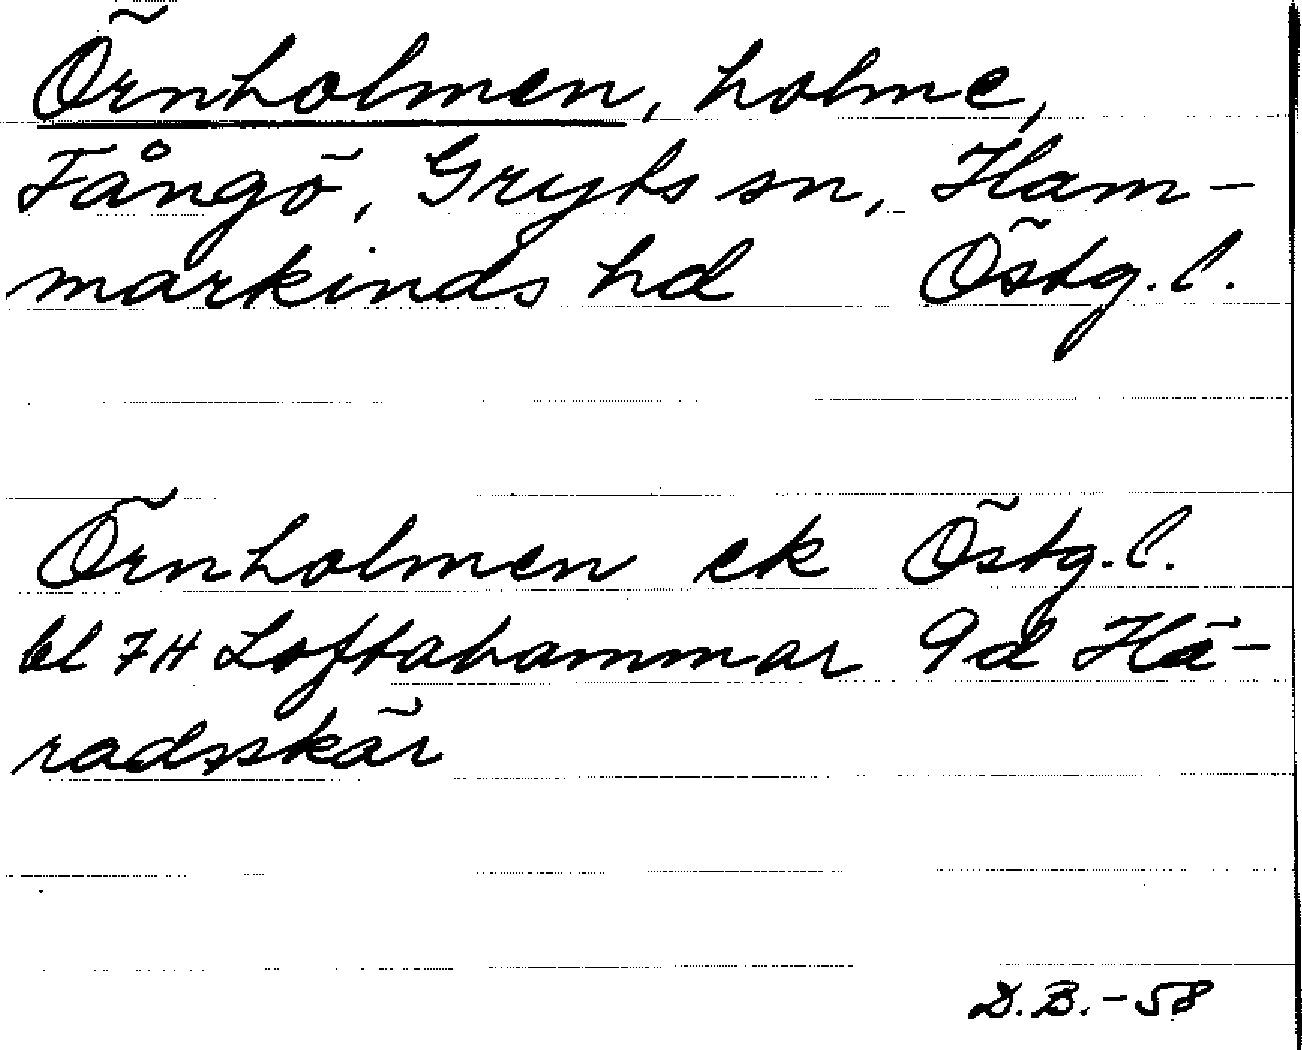 Örnholmen, holme,
Fångö, Gryts sn, Ham-
markinds hd Östg. l.
Örnholmen ek Östg. l.
bl 7H Loftahammar 9d Hä-
radsskär
D.B.-58